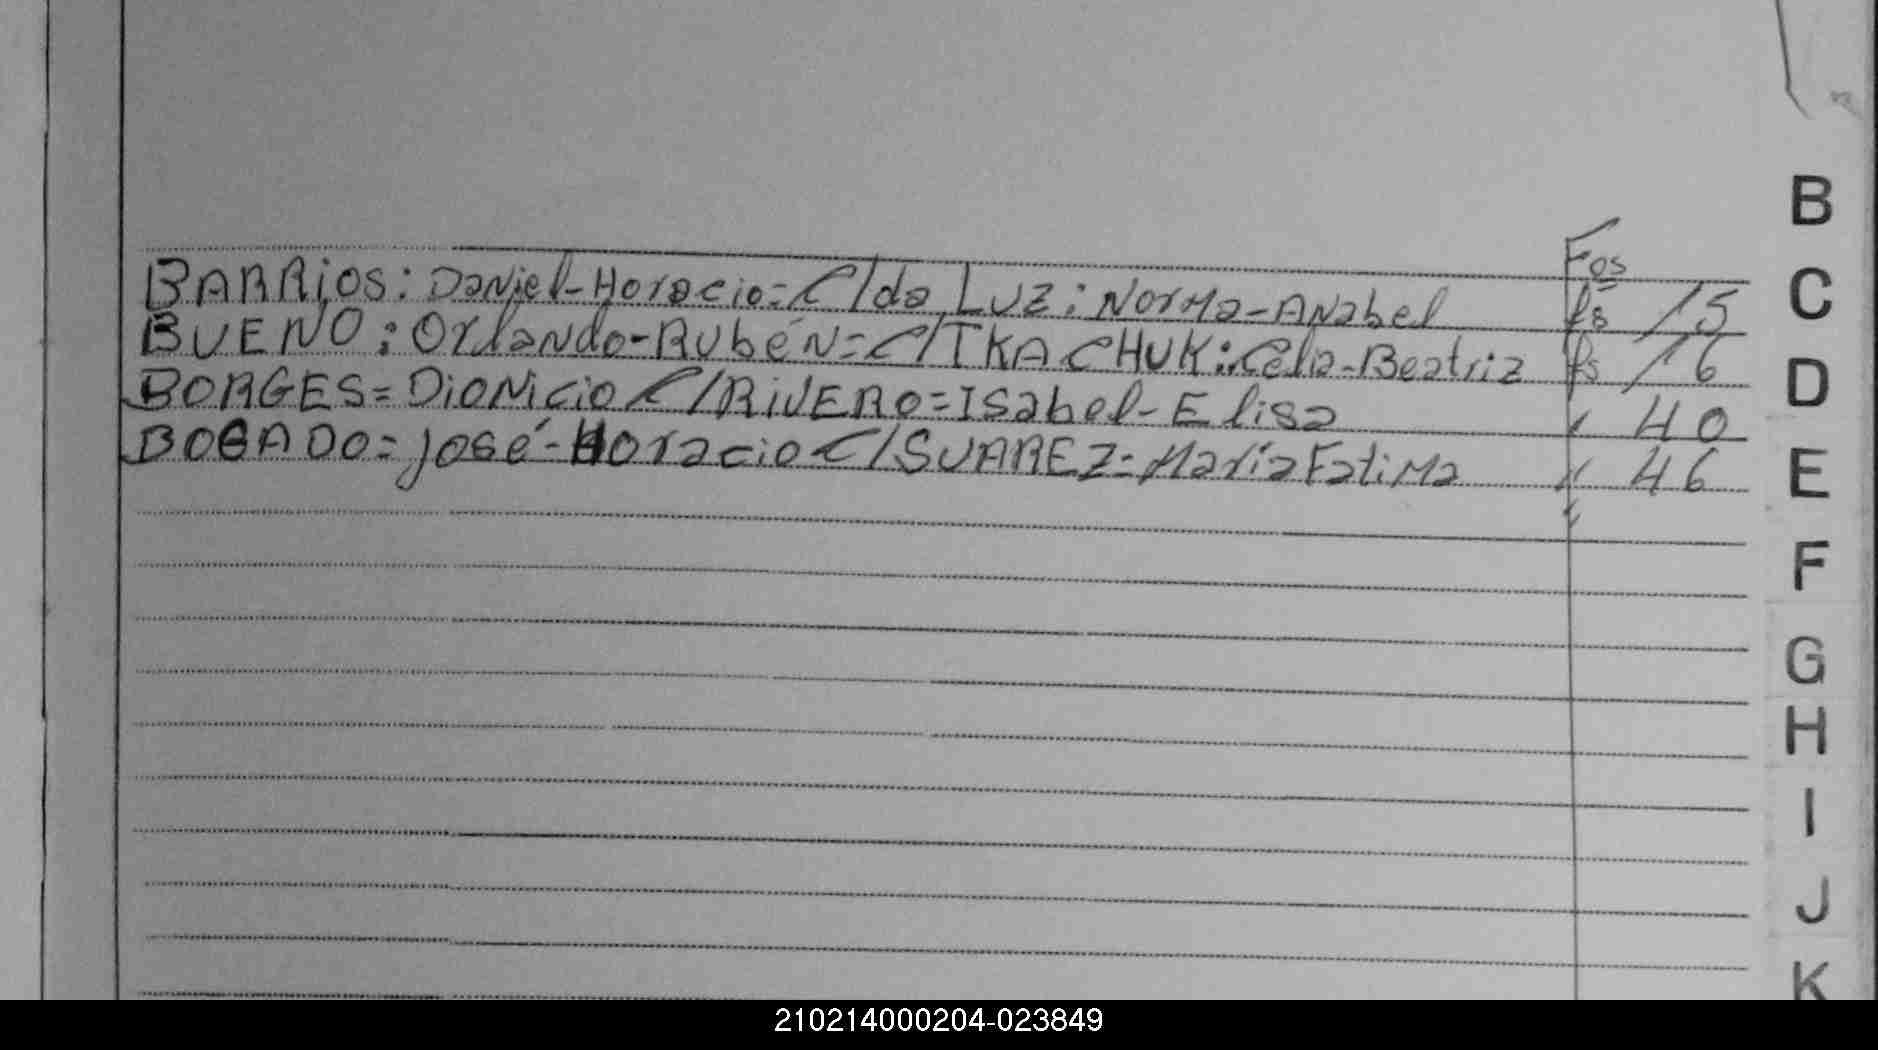 Fos
BARRiOS: Daniel-Horacio=C/da LUZ: Norma-Anabel fs 15
BUENO: Orlando-Rubén=C/TKACHUK: Celia-Beatriz fs 16
BORGES=Dionicio C/RiVERO=Isabel-Elisa " 40
BOGADO=José-Horacio C/SUAREZ=María Fatima " 46
"
B
C
D
E
F
G
H
I
J
K
210214000204-023849